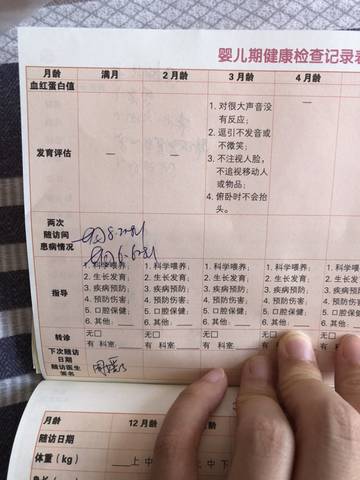 婴儿期健康检查记录表
月龄 满月 2月龄 3月龄 4月龄
血红蛋白值 —
发育评估 — —
1. 对很大声音没
有反应;
2. 逗引不发音或
不微笑;
3. 不注视人脸,
不追视移动人
或物品;
4. 俯卧时不会抬
头。
两次
随访间
患病情况
指导
1. 科学喂养; 1. 科学喂养; 1. 科学喂养; 1. 科学喂养;
2. 生长发育; 2. 生长发育; 2. 生长发育; 2. 生长发育;
3. 疾病预防; 3. 疾病预防; 3. 疾病预防; 3. 疾病预防;
4. 预防伤害; 4. 预防伤害; 4. 预防伤害; 4. 预防伤害;
5. 口腔保健; 5. 口腔保健; 5. 口腔保健; 5. 口腔保健;
6. 其他: 6. 其他: 6. 其他: 6. 其他:
转诊 无□ 无□ 无□ 无□
有 科室 有 科室 有 科室 有
下次随访
日期
随访医生
签名
月龄 12月龄
随访日期
体重(kg) 上 中 上 中 下
身长